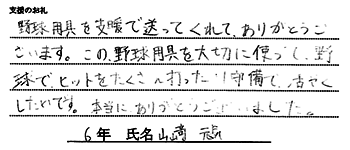 支援のお礼
野球用具を支援で送ってくれて、ありがとうご
ざいます。この、野球用具を大切に使って、野
球で、ヒットをたくさん打ったり守備で、活やく
したいです。本当にありがとうございました。
6年 氏名 山﨑